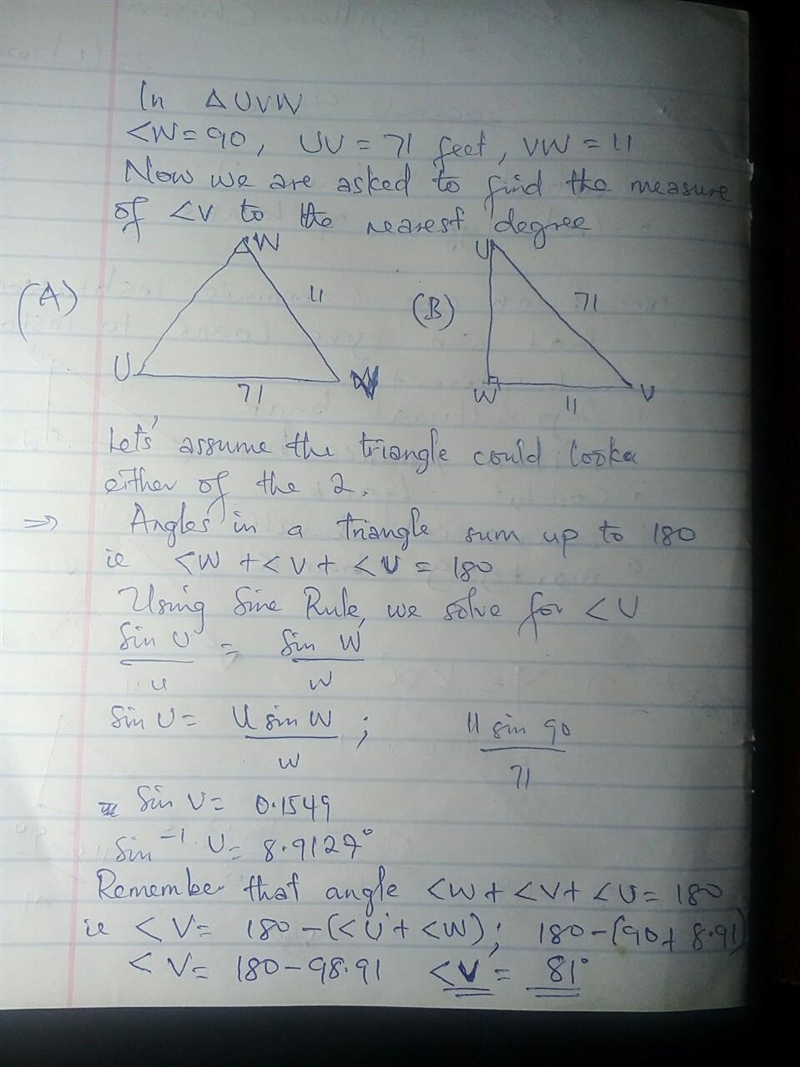 In ΔUVW
<W=90, UV = 71 feet, VW = 11
Now we are asked to find the measure
of <V to the nearest degree
(A)
W
11
U
71
(B)
U
71
W
11
V
Lets' assume the triangle could looka
either of the 2.
⇒ Angles in a triangle sum up to 180
ie <W + <V + <U = 180
Using Sine Rule, we solve for <U
Sin U / u = Sin W / w
Sin U = U sin W / w ; 11 sin 90 / 71
Sin U = 0.1549
Sin⁻¹ U = 8.9127°
Remember that angle <W + <V + <U = 180
ie <V = 180 - (<U + <W); 180 - (90 + 8.91)
<V = 180 - 98.91 <V = 81°